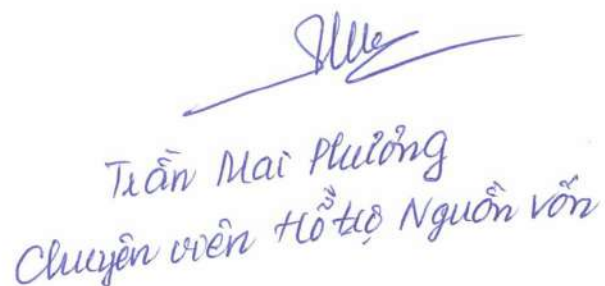 Trần Mai Phương
Chuyên viên Hỗ trợ Nguồn vốn